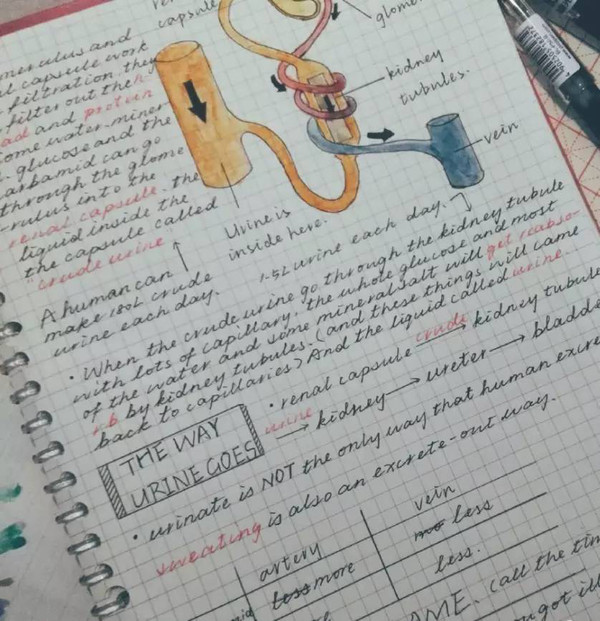 capsule
glome
merulus and
capsule work
filtration. they
filter out the
and protein
some water, miner
glucose and the
carbamid can go
through the glome
-rulus into the
renal capsule. the
liquid inside the
the capsule called
"crude urine
kidney
tubules.
vein
Urine is
inside here.
A human can
make 180L crude
urine each day.
1.5L urine each day.
· When the crude urine go through the kidney tubule
with lots of capillary, the whole glucose and most
of the water and some mineral salt will get reabso-
rb by kidney tubules. (and these things will came
back to capillaries) And the liquid called urine.
· renal capsule crude kidney tubule
urine kidney ureter bladde
THE WAY
URINE GOES
· urinate is NOT the only way that human excre
sweating is also an excrete-out way.
artery vein
less more more less
less.
AME. (all the tim
got ill